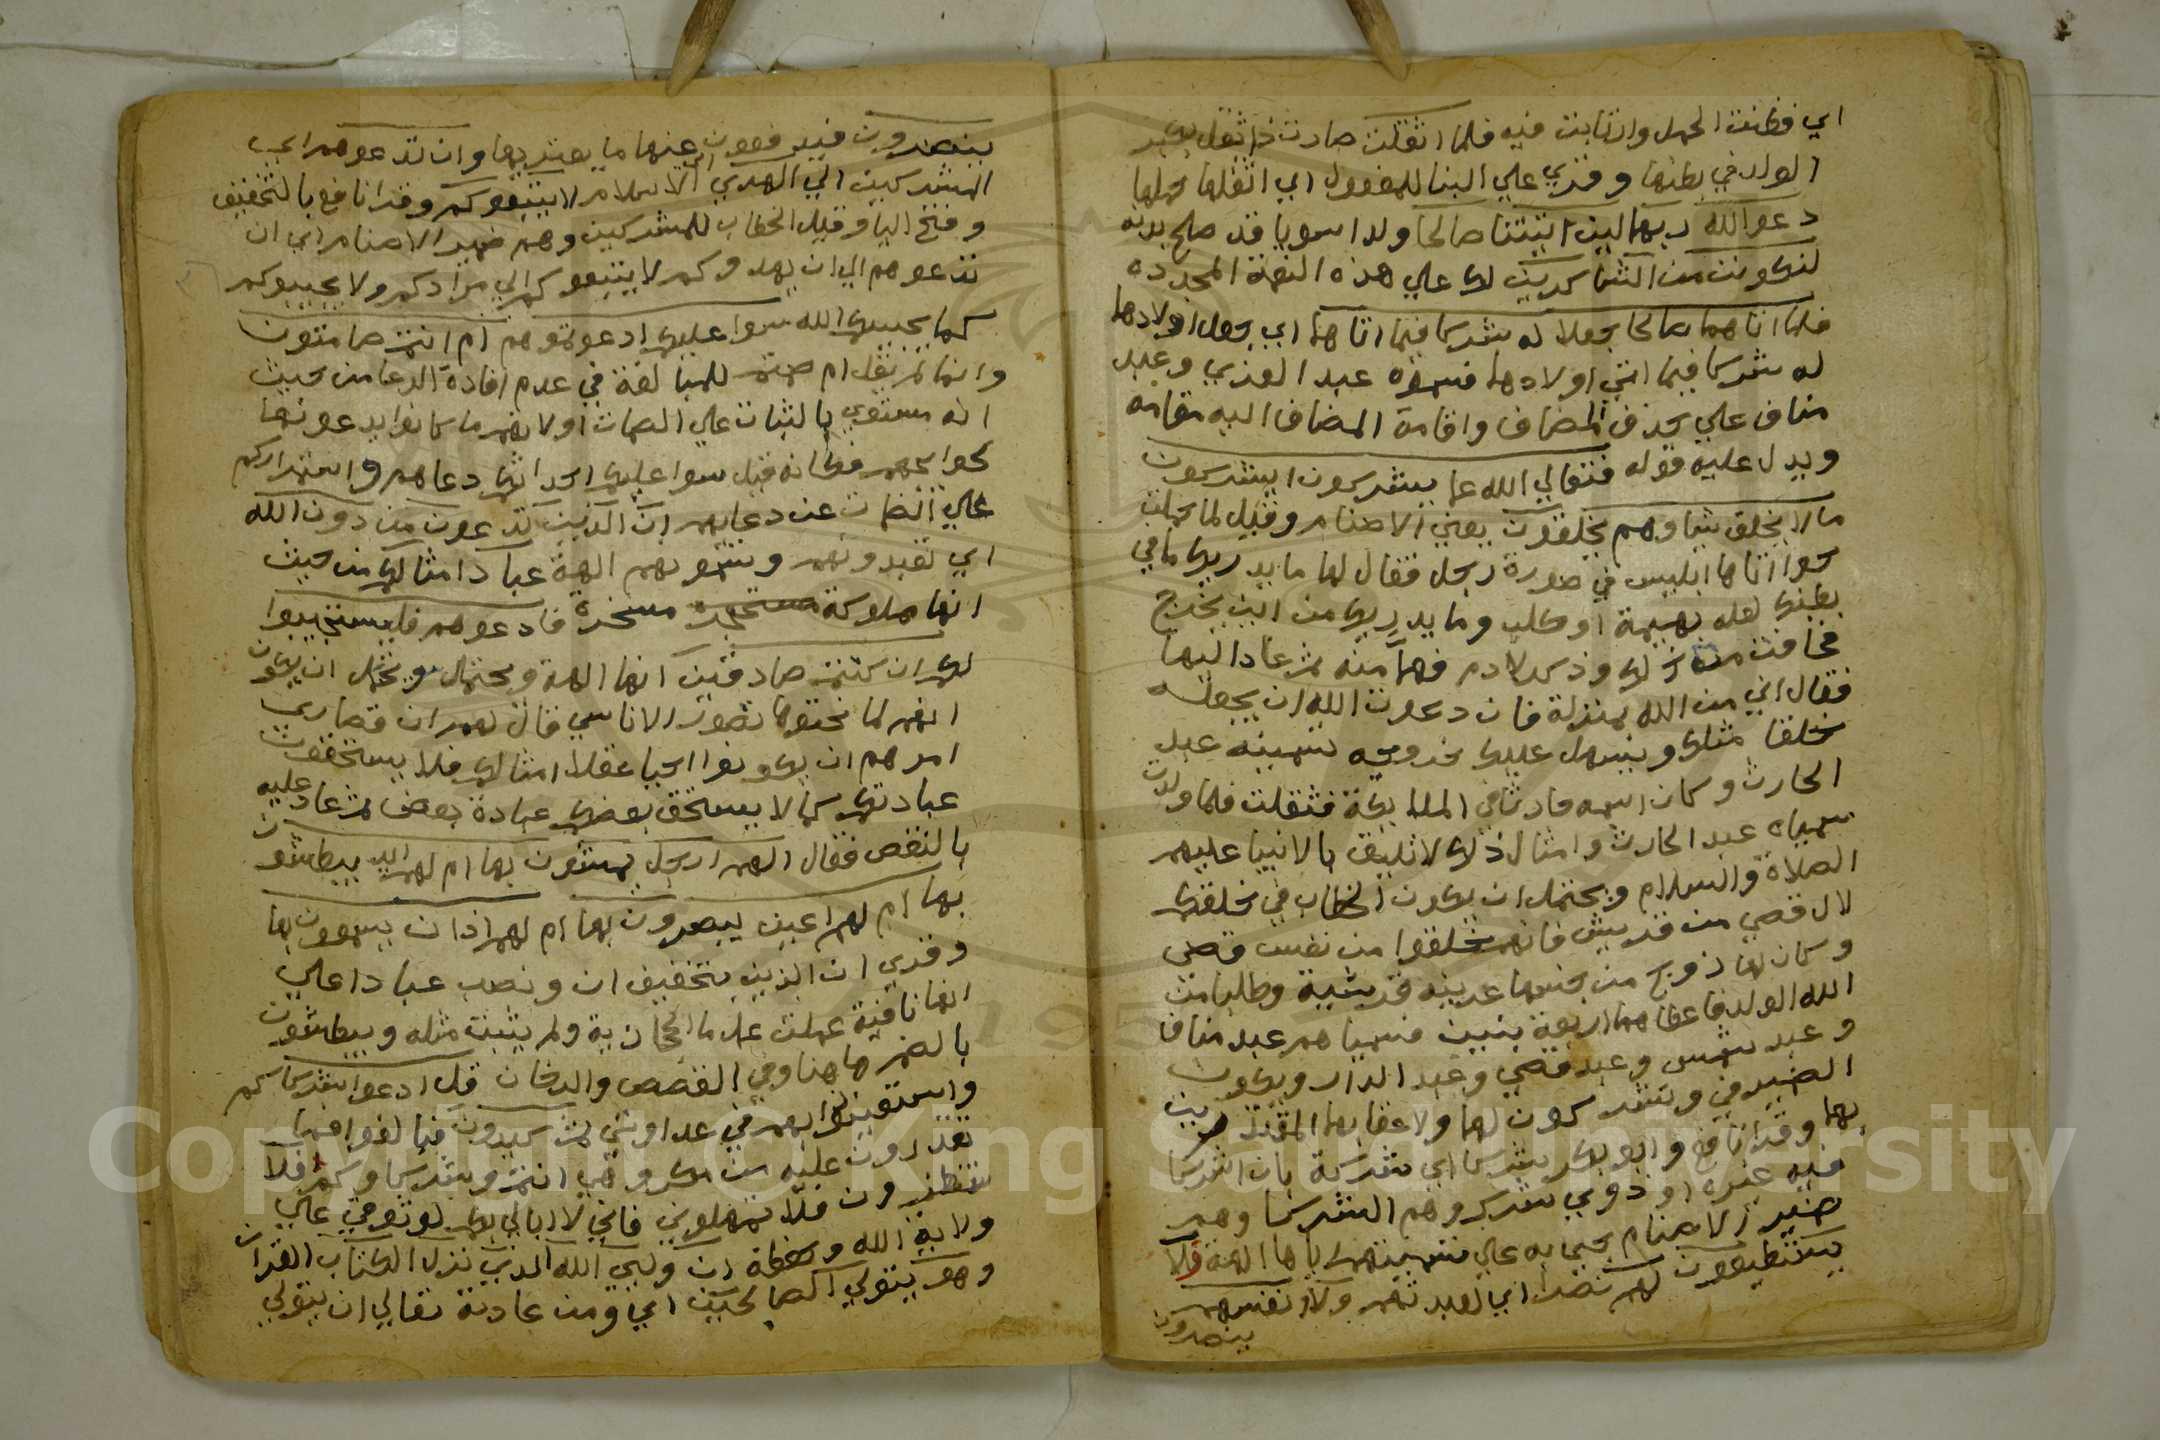 اي فظنت الحمل وارتابت فيه فلما اثقلت صارت ذا ثقل بكبر
الولد في بطنها وقري علي البنا للمفعول اي اثقلها حملها
دعوا الله ربهما لين اتيتنا صالحا ولدا سويا قد صلح بدنه
لنكونن من الشاكرين لك علي هذه النعمة المجددة
فلما اتاهما صالحا جعلا له شركا فيما اتاهما اي جعل اولادهما
له شركا فيما اتي اولادهما فسموه عبد العزي وعبد
مناف علي حذف المضاف واقامة المضاف اليه مقامه
ويدل عليه قوله فتعالي الله عما يشركون ايشركون
مالا يخلق شيا وهم يخلقون يعني الاصنام وقيل لما حملت
حوا اتاها ابليس في صورة رجل فقال لها ما يدريك ما في
بطنك لعله بهيمة او كلب وما يدريك من اين يخرج
فخافت من ذلك وذكر لادم فهما منه ثم عاد اليها
فقال اني من الله بمنزلة فان دعوت الله ان يجعله
خلقا مثلك ويسهل عليك خروجه تسمينه عبد
الحارث وكان اسمه حارثا في الملايكة فتقلت فلما ولدت
سمياه عبد الحارث وامثال ذلك لا تليق بالانبيا عليهم
الصلاة والسلام ويحتمل ان يكون الخطاب في خلقكم
لال قصي من قريش فانهم خلقوا من نفس قصي
وكان لها زوج من جنسها عربية قرشية وطلبا من
الله الولد فاعطاهما اربعة بنين فسمياهم عبد مناف
وعبد شمس وعبد قصي وعبد الدار ويكون
الضمير في يشركون لهما ولاعقابهما المقتدين
بهما وقرا نافع وابو بكر شركا اي شركة بان اشركا
فيه غيره او ذوي شرك وهم الشركا وهم
ضمير الاصنام جي به علي تسميتهم اياها الهة ولا
يستطيعون لهم نصرا اي لعبدتهم ولا انفسهم
ينصرون
ينصرون فيدفعون عنها ما يعتريها وان تدعوهم اي
المشركين الي الهدي الي الاسلام لا يتبعوكم وقرا نافع بالتخفيف
وفتح البا وقيل الخطاب للمشركين وهم ضمير الاصنام اي ان
تدعوهم الي ان يهدوكم لا يتبعوكم الي مرادكم ولا يجيبوكم
كما يجيبكم الله سوا عليكم ادعوتموهم ام انتم صامتون
وانما لم يقل ام صمتم للمبالغة في عدم افادة الدعا من حيث
انه مستوي بالثبات علي الصمات اولا نهم ما كانوا يدعونها
لحوايجهم فكانه قيل سوا عليكم احداثكم دعاهم واستمراركم
علي الصمات عن دعايهم ان الذين تدعون من دون الله
اي تعبدونهم وتسمونهم الهة عباد امثالكم من حيث
انها مملوكة مسخرة فادعوهم فليستجيبوا
لكم ان كنتم صادقين انها الهة ويحتمل ان يكون
انهم لما نحتوها بصور الاناسي قال لهم ان قصاري
امرهم ان يكونوا احيا عقلا امثالكم فلا يستحقون
عبادتكم كما لا يستحق بعضكم عبادة بعض ثم عاد عليه
بالنقص فقال الهم ارجل يمشون بها ام لهم ايد يبطشون
بها ام لهم اعين يبصرون بها ام لهم اذان يسمعون بها
وقري ان الذين بتخفيف ان ونصب عبادا علي
انها نافية عملت عمل ما الحجازية ولم يثبت مثله ويبطشون
بالضم هاهنا وفي القصص والدخان قل ادعوا شركاكم
واستعينوا بهم في عداوتي ثم كيدون فبالغوا فيما
تقدرون عليه من مكروهي انتم وشركاوكم فلا
تنظرون فلا تمهلوني فاني لا ابالي بكم لوثوقي علي
ولاية الله وحفظه ان وليي الله الذي نزل الكتاب القران
وهو يتولي الصالحين اي ومن عادته تعالي ان يتولي
Copyright © King Saud University
1957